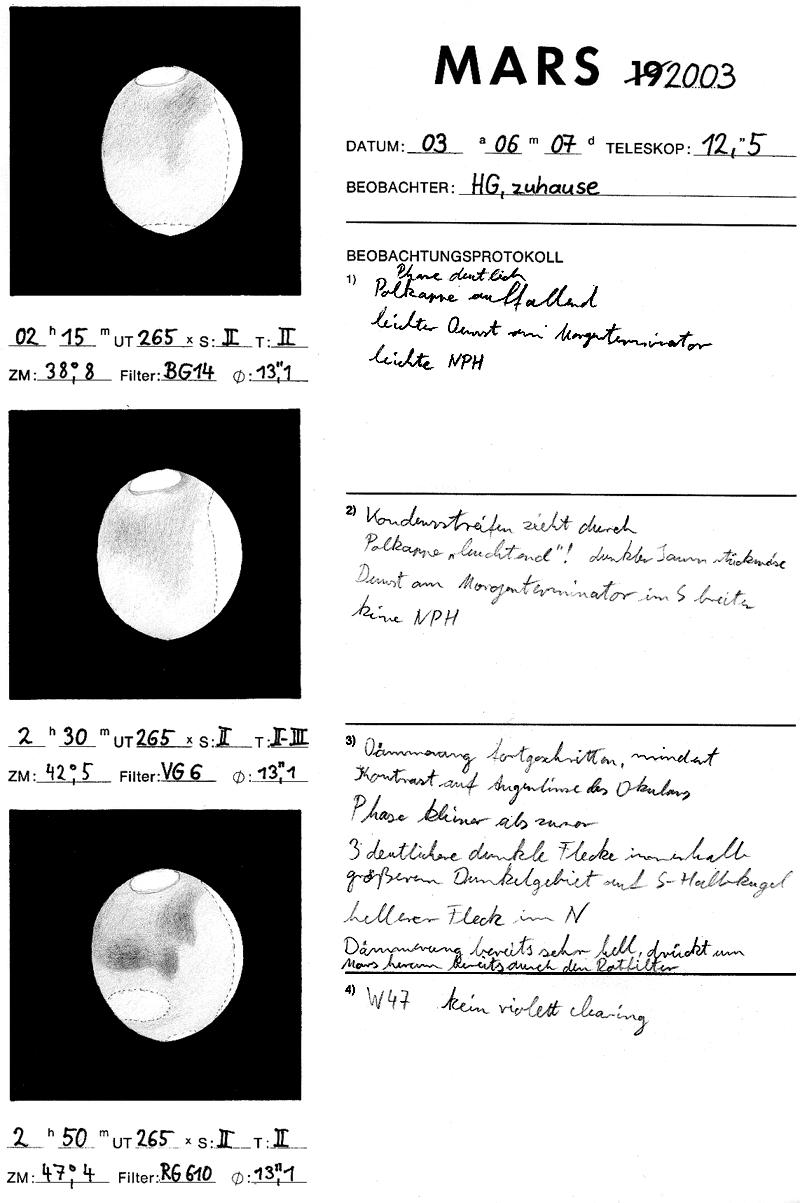 MARS 19 2003
DATUM: 03 a 06 m 07 d TELESKOP: 12,"5
BEOBACHTER: HG, zuhause
BEOBACHTUNGSPROTOKOLL
1) Phase deutlich
Polkappe auffallend
leichter Dunst am Morgenterminator
leichte NPH
02 h 15 m UT 265 x S: II T: II
ZM: 38°,8 Filter: BG14 Φ: 13",1
2) Kondensstreifen zieht durch
Polkappe „leuchtend"! dunkler Saum stückweise
Dunst am Morgenterminator im S breiter
keine NPH
2 h 30 m UT 265 x S: II T: II-III
ZM: 42°,5 Filter: VG6 Φ: 13",1
3) Dämmerung fortgeschritten, mindert
Kontrast auf Augenlinse des Okulars
Phase kleiner als zuvor
3 deutlichere dunkle Flecke innerhalb
größerem Dunkelgebiet auf S-Halbkugel
hellerer Fleck im N
Dämmerung bereits sehr hell, drückt um
Mars herum bereits durch den Rotfilter
2 h 50 m UT 265 x S: II T: II
ZM: 47°,4 Filter: RG610 Φ: 13",1
4) W47 kein violett clearing